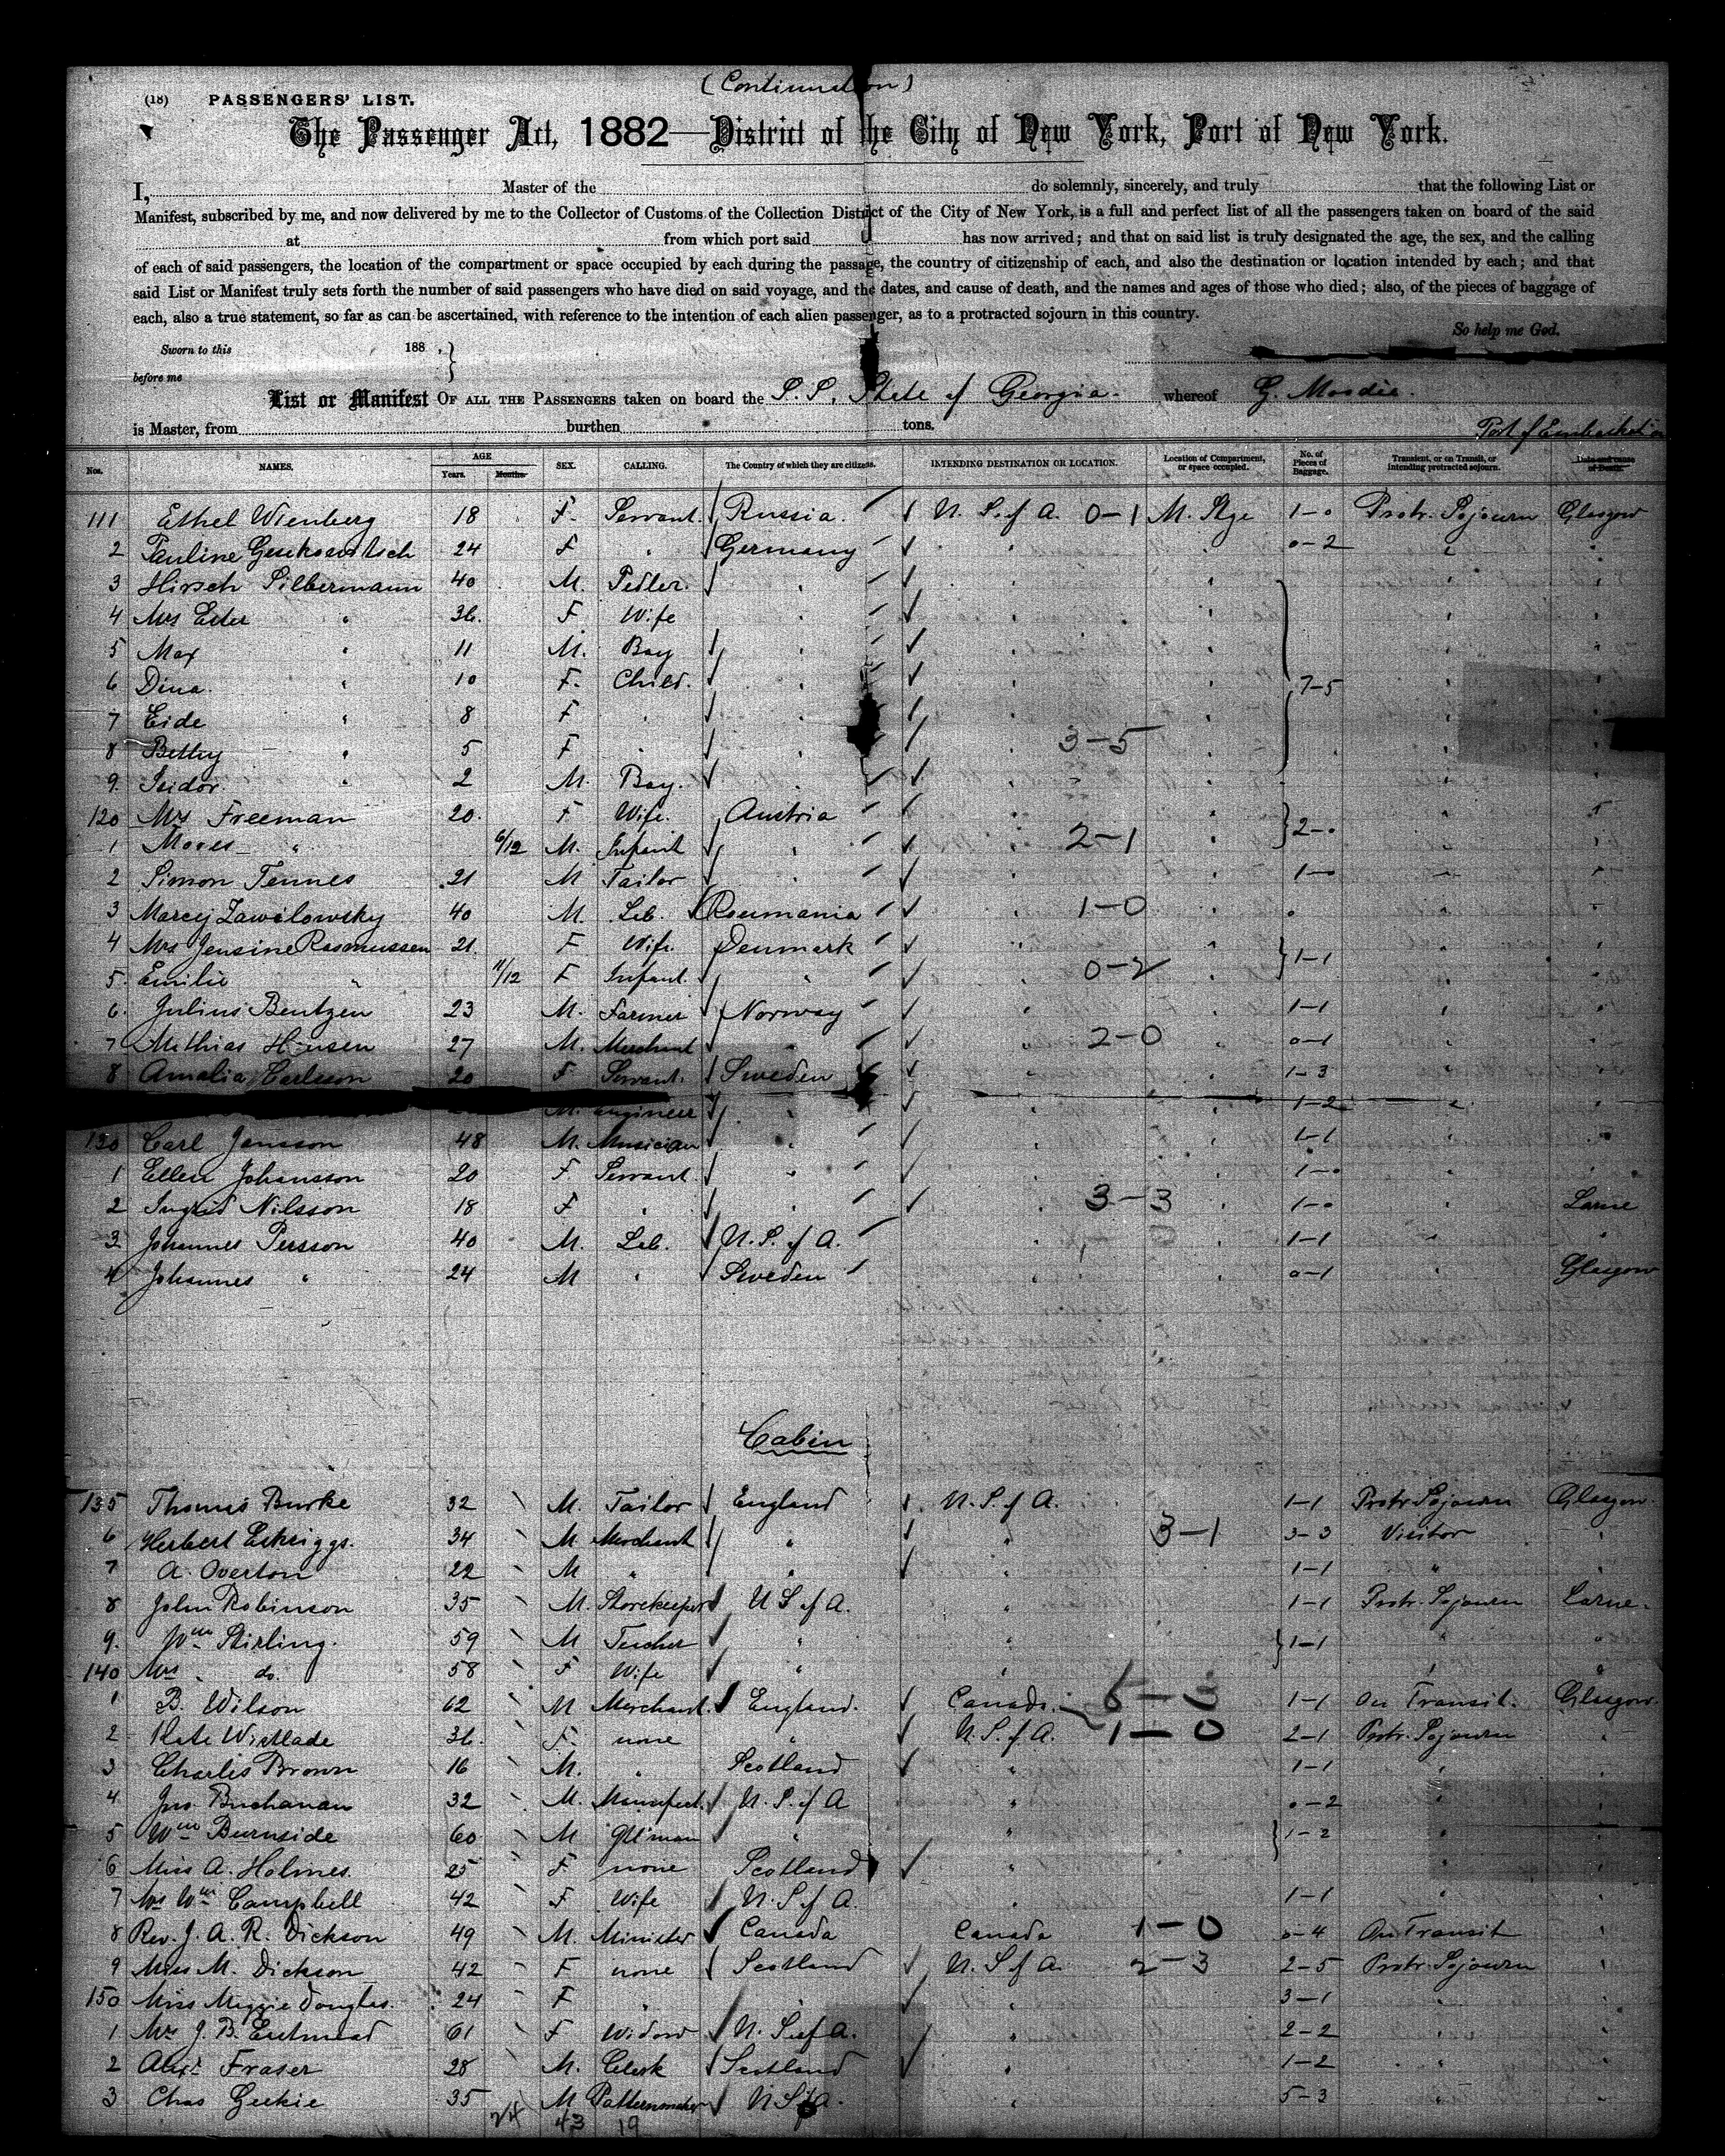 (Continuation)
(18) PASSENGERS' LIST.
The Passenger Act, 1882—District of the City of New York, Port of New York.
I, Master of the do solemnly, sincerely, and truly that the following List or
Manifest, subscribed by me, and now delivered by me to the Collector of Customs of the Collection District of the City of New York, is a full and perfect list of all the passengers taken on board of the said
at from which port said has now arrived; and that on said list is truly designated the age, the sex, and the calling
of each of said passengers, the location of the compartment or space occupied by each during the passage, the country of citizenship of each, and also the destination or location intended by each; and that
said List or Manifest truly sets forth the number of said passengers who have died on said voyage, and the dates, and cause of death, and the names and ages of those who died; also, of the pieces of baggage of
each, also a true statement, so far as can be ascertained, with reference to the intention of each alien passenger, as to a protracted sojourn in this country.
So help me God.
Sworn to this 188 ,
before me
List or Manifest OF ALL THE PASSENGERS taken on board the S.S. State of Georgia. whereof G. Moodie.
is Master, from burthen tons.
Port of Embarkation
Nos. NAMES. AGE Years. Months. SEX. CALLING. The Country of which they are citizens. INTENDING DESTINATION OR LOCATION. Location of Compartment, or space occupied. No. of Pieces of Baggage. Transient, or on Transit, or intending protracted sojourn. Date and cause of Death.
111 Ethel Wienberg 18 F. Servant. Russia. U. S. of A. 0-1 M. Stge 1-0 Protr. Sojourn Glasgow
2 Pauline 24 F " Germany " " 0-2 " "
3 Hirsch Silbermann 40 M. Pedler. " " " " "
4 Mrs Ester " 36. F Wife " " " " "
5 Max " 11 M. Boy " " " " "
6 Dina. " 10 F. Child. " " " 7-5 " "
7 Eide " 8 F " " " " " "
8 Bettsy " 5 F " " " 3-5 " " "
9. Isidor. " 2 M. Boy. " " " " "
120 Mrs Freeman 20. F Wife. Austria " " 2-0 " "
1 Moses " 6/12 M. Infant " " 2-1 " " "
2 Simon Tennes 21 M Tailor " " " 1-0 " "
3 Marcij Zawilowsky 40 M. Lab. Roumania " 1-0 " 0 " "
4 Mrs Jensine Rasmussen 21. F Wife. Denmark " " 1-1 " "
5. Emilie " 11/12 F Infant. " " 0-2 " " "
6. Julius Bentzen 23 M. Farmer Norway " " 1-1 " "
7 Mathias Hansen 27 M. Merchant " " 2-0 " 0-1 " "
8 Amalia Carlsson 20 F Servant. Sweden " " 1-3 " "
M. Engineer " " " 1-2 " "
130 Carl Jansson 48 M. Musician " " " 1-1 " "
1 Ellen Johansson 20 F Servant. " " " 1-0 " "
2 Ingrid Nilsson 18 F " " " 3-3 " 1-0 " Larne
3 Johannes Persson 40 M. Lab. U. S. of A. " " 1-1 " "
4 Johannes " 24 M " Sweden " " 0-1 " Glasgow
Cabin
135 Thomas Burke 32 M. Tailor England U. S. of A. 1-1 Protr. Sojourn Glasgow.
6 Herbert Eskriggs. 34 M. Merchant " " 3-1 3-3 Visitor "
7 A. Overton 22 M " " " 1-1 " "
8 John Robinson 35 M. Storekeeper U S of A. " 1-1 Protr. Sojourn Larne.
9. Wm Stirling. 59 M Teacher " " 1-1 " "
140 Mrs do. 58 F Wife " " " "
1 B. Wilson 62 M Merchant. England. Canada. 1-1 On Transit. Glasgow.
2 Kate Westlade 36. F. none " U. S. of A. 1-0 2-1 Protr. Sojourn "
3 Charles Brown 16 M. " Scotland " 1-1 " "
4 Jno. Buchanan 32 M. Manufact. U. S. of A " 0-2 " "
5 Wm Burnside 60 M G'tl'man " " 1-2 " "
6 Miss A. Holmes. 25 F none Scotland " " "
7 Mrs Wm Campbell 42 F Wife U. S of A. " 1-1 " "
8 Rev. J. A. R. Dickson 49 M. Minister Canada Canada 1-0 0-4 On Transit "
9 Miss M. Dickson 42 F none Scotland U. S of A. 2-3 2-5 Protr. Sojourn "
150 Miss Maggie Douglas. 24 F " " " 3-1 " "
1 Mrs J. B. Eastmead 61 F Widow U. S. of A. " 2-2 " "
2 Alexr Fraser 28 M. Clerk Scotland " 1-2 " "
3 Chas Geekie 35 M Patternmaker U S of A. " 5-3 " "
24 43 19